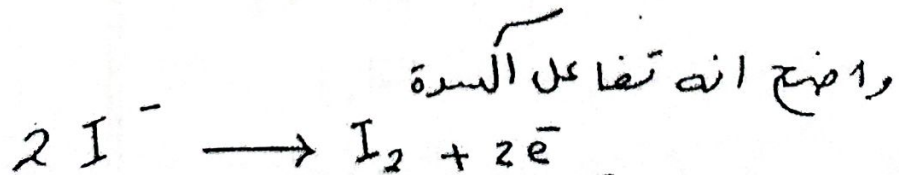 واضح انه تفاعل اكسدة
2 I⁻ ⟶ I₂ + 2e⁻